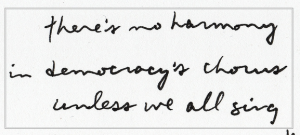 there's no harmony
in democracy's chorus
unless we all sing